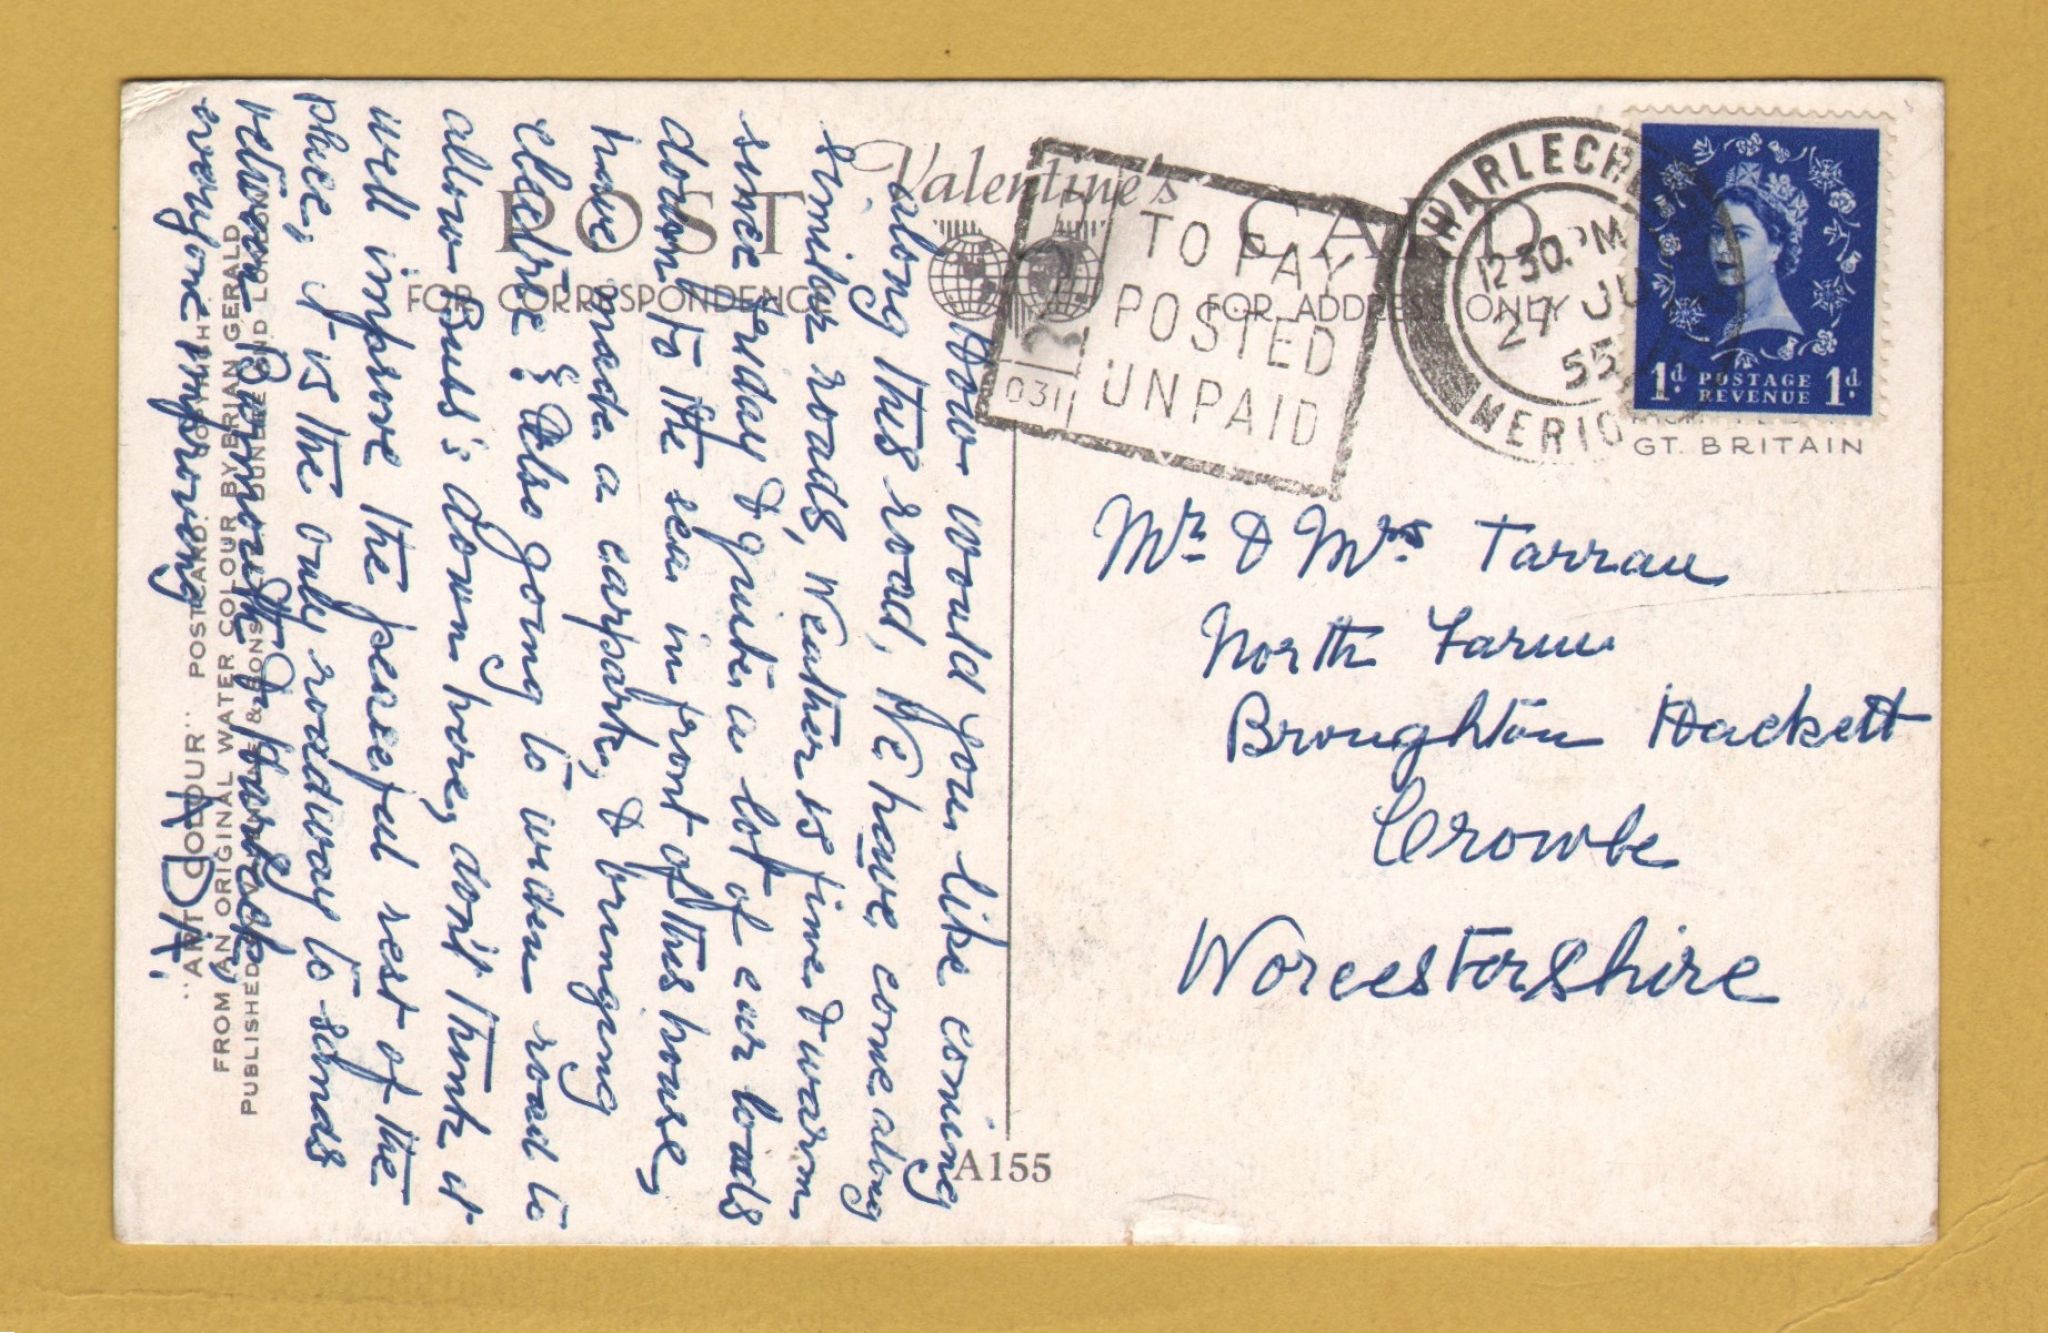 Valentine's
POST CARD
FOR CORRESPONDENCE
FOR ADDRESS ONLY
TO PAY
POSTED
UNPAID
031
HARLECH
12 30 PM
27 JU
55
MERIO
1d POSTAGE REVENUE 1d
GT. BRITAIN
Mr & Mrs Tarran
North Farm
Broughton Hackett
Crowle
Worcestershire
How would you like coming
along this road, We have come along
similar roads, Weather is fine & warm
since Friday & quite a lot of car loads
down to the sea in front of this house,
have made a carpark, & bringing
Electric & Also going to widen road to
allow Bus's down here, don't think it
will improve the peaceful rest of the
place, it is the only roadway to sands
everyone improving
A D H.
"ART COLOUR" POSTCARD.
FROM AN ORIGINAL WATER COLOUR BY BRIAN GERALD
PUBLISHED & SONS DUNDEE AND LONDON
A155